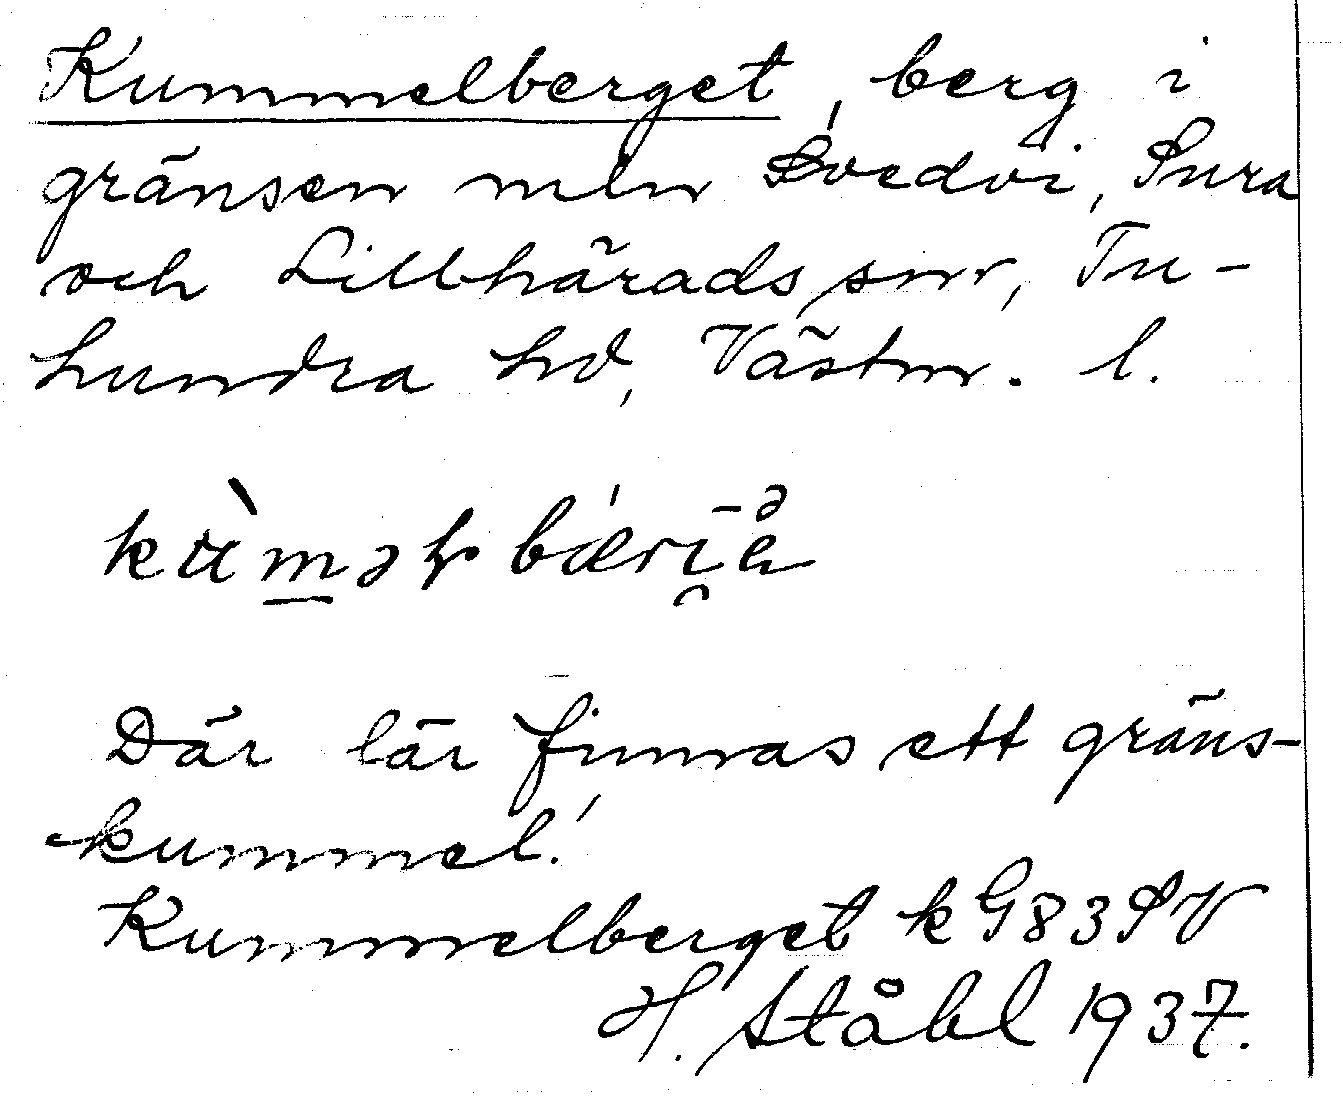 Kummelberget, berg i
gränsen mln Svedvi, Sura
och Lillhärads snr, Tu-
hundra hd, Västm. l.
Där lär finnas ett gräns-
kummel.
Kummelberget k G83SV
H. Ståhl 1937.